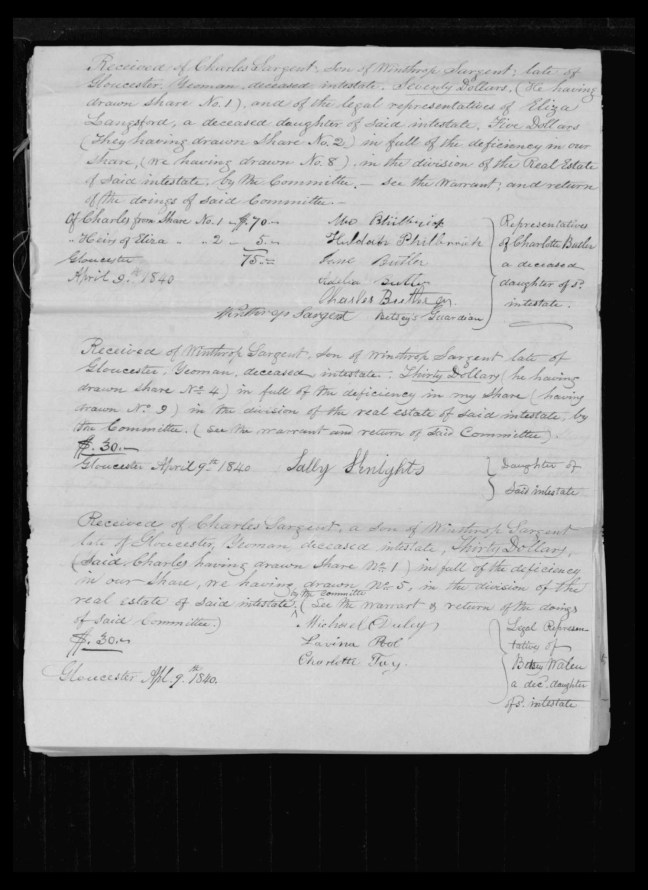 Received of Charles Sargent, Son of Winthrop Sargent, late of
Gloucester, Yeoman, deceased intestate. Seventy Dollars, (He having
drawn share No. 1), and of the legal representatives of Eliza
Langsford, a deceased daughter of said intestate, Five Dollars
(They having drawn Share No. 2) in full of the deficiency in our
Share, (we having drawn No. 8). in the division of the Real Estate
of said intestate, by the Committee. — See the Warrant; and return
of the doings of said Committee. —
Of Charles from Share No. 1 - $70.-
" Heirs of Eliza " " 2 - 5.-
Gloucester 75.-
April 9.th 1840
Hildah Philbrick
Jane Butler
Butler
Charles Butler Jr.
Winthrop Sargent Betsey's Guardian
Representatives
of Charlotte Butler
a deceased
daughter of Sd.
intestate.
Received of Winthrop Sargent, Son of Winthrop Sargent late of
Gloucester, Yeoman, deceased intestate. Thirty Dollars (he having
drawn share No. 4) in full of the deficiency in my Share (having
drawn No. 9) in the division of the real estate of said intestate, by
the Committee. (See the warrant and return of said Committee).
$. 30.—
Gloucester April 9th 1840 Sally Knights
Daughter of
said intestate
Received of Charles Sargent, a son of Winthrop Sargent
late of Gloucester, Yeoman, deceased intestate, Thirty Dollars,
(Said Charles having drawn Share No. 1) in full of the deficiency
in our Share, we having drawn No. 5, in the division of the
real Estate of said intestate, by the committee (See the warrant & return of the doings
of said Committee.)
$. 30.-
Michael
Lavina Pool
Charlotte
Legal Represen-
tative of
Betsey
a dec. daughter
of Sd. intestate
Gloucester Apl. 9.th 1840.